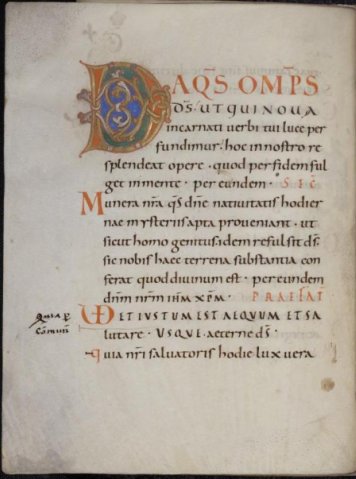 DA QS OMPS
DS UT QUI NOVA
incarnati verbi tui luce per
fundimur. hoc in nostro re
splendeat opere. quod per fidem ful
get in mente. per eundem. SEC
Munera nra qs dne nativitatis hodier
nae mysteriis apta proveniant. ut
sicut homo genitus idem refulsit ds.
sic nobis haec terrena substantia con
ferat quod divinum est. per eundem
dnm nrm ihm xpm. PRAEFAT
VD ET IUSTUM EST AEQUUM ET SA
lutare. USQUE. aeterne ds.
quia nri salvatoris hodie lux vera
quia p
Comun